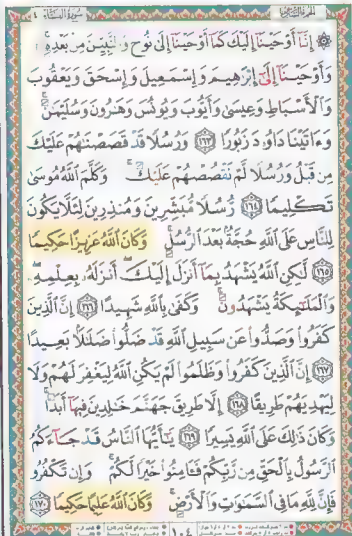 الجزء السادس سورة النساء ٤
إِنَّا أَوْحَيْنَا إِلَيْكَ كَمَا أَوْحَيْنَا إِلَىٰ نُوحٍ وَالنَّبِيِّينَ مِنْ بَعْدِهِ
وَأَوْحَيْنَا إِلَىٰ إِبْرَٰهِيمَ وَإِسْمَٰعِيلَ وَإِسْحَٰقَ وَيَعْقُوبَ
وَالْأَسْبَاطِ وَعِيسَىٰ وَأَيُّوبَ وَيُونُسَ وَهَٰرُونَ وَسُلَيْمَٰنَ
وَءَاتَيْنَا دَاوُۥدَ زَبُورًا ١٦٣ وَرُسُلًا قَدْ قَصَصْنَٰهُمْ عَلَيْكَ
مِن قَبْلُ وَرُسُلًا لَّمْ نَقْصُصْهُمْ عَلَيْكَ وَكَلَّمَ اللَّهُ مُوسَىٰ
تَكْلِيمًا ١٦٤ رُّسُلًا مُّبَشِّرِينَ وَمُنذِرِينَ لِئَلَّا يَكُونَ
لِلنَّاسِ عَلَى اللَّهِ حُجَّةٌ بَعْدَ الرُّسُلِ وَكَانَ اللَّهُ عَزِيزًا حَكِيمًا
١٦٥ لَّٰكِنِ اللَّهُ يَشْهَدُ بِمَا أَنزَلَ إِلَيْكَ أَنزَلَهُۥ بِعِلْمِهِۦ
وَالْمَلَٰٓئِكَةُ يَشْهَدُونَ وَكَفَىٰ بِاللَّهِ شَهِيدًا ١٦٦ إِنَّ الَّذِينَ
كَفَرُوا وَصَدُّوا عَن سَبِيلِ اللَّهِ قَدْ ضَلُّوا ضَلَٰلًا بَعِيدًا
١٦٧ إِنَّ الَّذِينَ كَفَرُوا وَظَلَمُوا لَمْ يَكُنِ اللَّهُ لِيَغْفِرَ لَهُمْ وَلَا
لِيَهْدِيَهُمْ طَرِيقًا ١٦٨ إِلَّا طَرِيقَ جَهَنَّمَ خَٰلِدِينَ فِيهَا أَبَدًا
وَكَانَ ذَٰلِكَ عَلَى اللَّهِ يَسِيرًا ١٦٩ يَٰٓأَيُّهَا النَّاسُ قَدْ جَاءَكُمُ
الرَّسُولُ بِالْحَقِّ مِن رَّبِّكُمْ فَـَٔامِنُوا خَيْرًا لَّكُمْ وَإِن تَكْفُرُوا
فَإِنَّ لِلَّهِ مَا فِي السَّمَٰوَٰتِ وَالْأَرْضِ وَكَانَ اللَّهُ عَلِيمًا حَكِيمًا ١٧٠
١٠٤